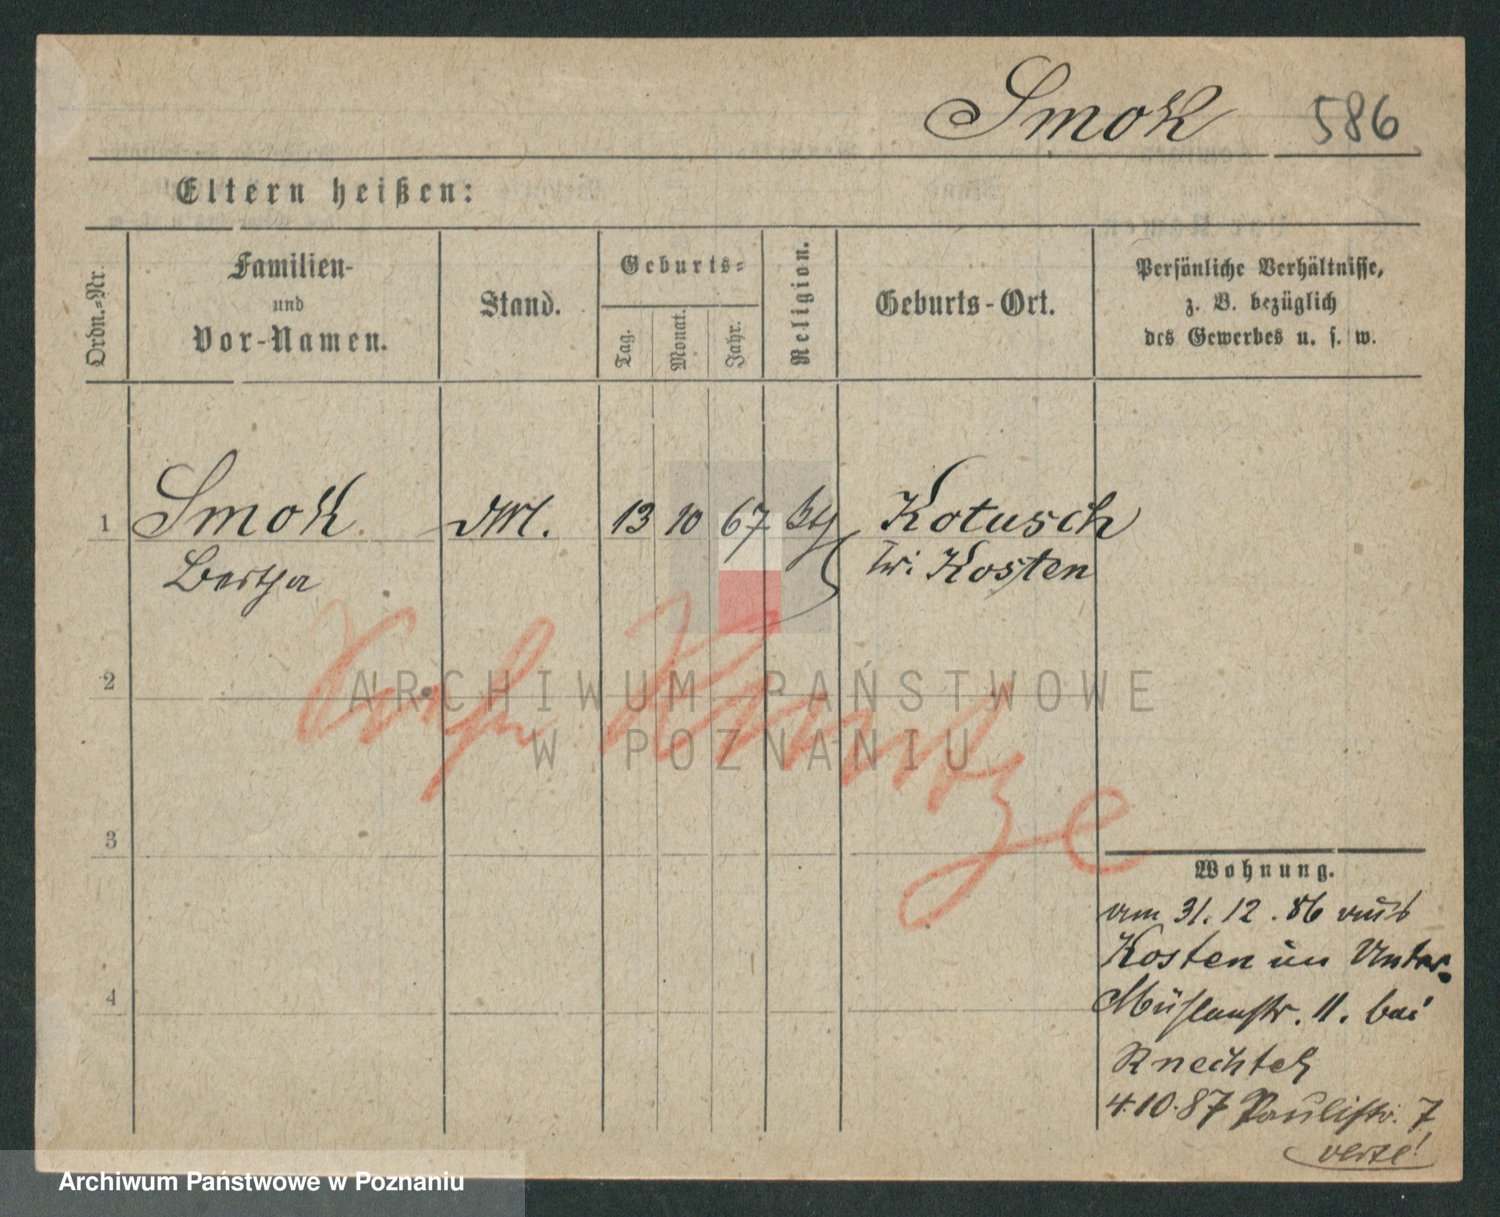 Smok 586
Eltern heißen:
Ordn.-Nr.
Familien-
und
Vor-Namen.
Stand.
Geburts-
Tag.
Monat.
Jahr.
Religion.
Geburts-Ort.
Persönliche Verhältnisse,
z. B. bezüglich
des Gewerbes u. s. w.
1 Smok 13 10 67 Kotusch
Bertha Kr: Kosten
2
ARCHIWUM PAŃSTWOWE
W POZNANIU
3
4
Wohnung.
am 31. 12. 86 aus
Kosten in Unter-
Mühlenstr. 11. bei
Knechtel
4.10.87 Paulistr. 7
verte!
Archiwum Państwowe w Poznaniu